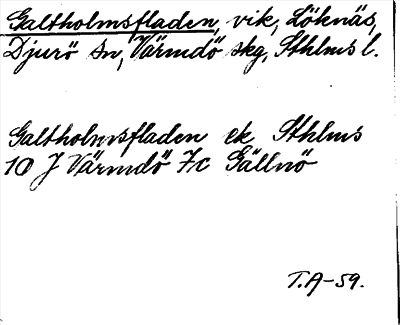 Galtholmsfladen, vik, Löknäs,
Djurö sn, Värmdö skg, Sthlms l.
Galtholmsfladen ek Sthlms
10 J Värmdö 7c Gällnö
T.A-59.